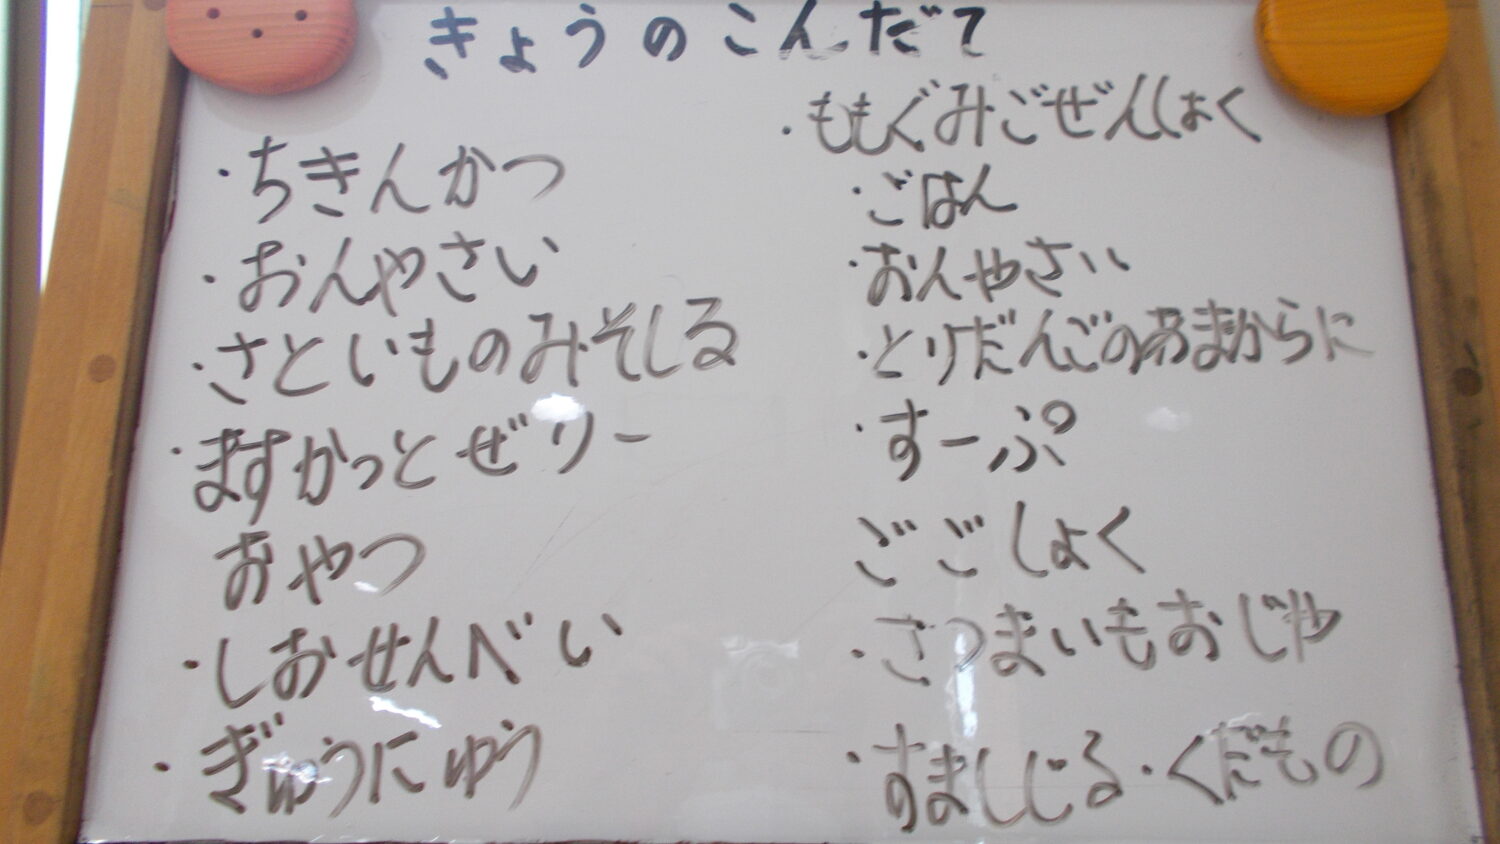 きょうのこんだて
・ちきんかつ
・おんやさい
・さといものみそしる
・ますかっとぜりー
おやつ
・しおせんべい
・ぎゅうにゅう
・ももぐみごぜんしょく
・ごはん
・おんやさい
・とりだんごのあまからに
・すーぷ
ごごしょく
・さつまいもおじや
・すましじる・くだもの